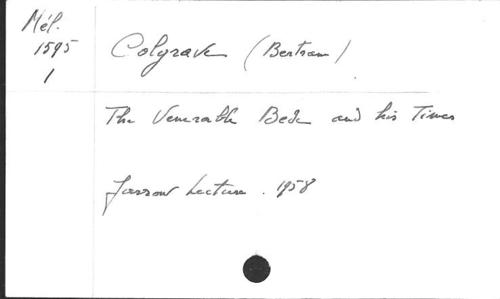 Mél.
1595
1
Colgrave (Bertram)
The Venerable Bede and his Times
Jarrow Lecture. 1958